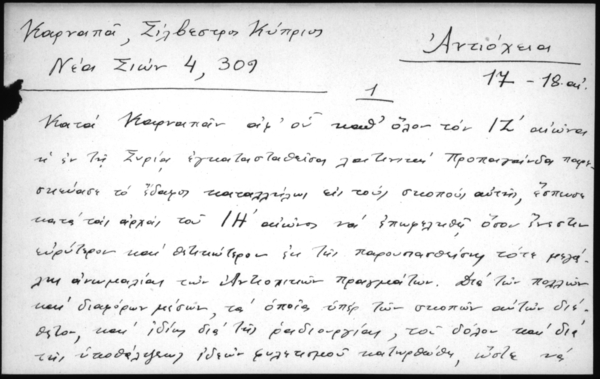 Καρναπᾶ, Σίλβεστρος Κύπριος
Νέα Σιών 4, 309
Ἀντιόχεια
17 - 18 αἰ.
1
Κατά Καρναπᾶν ἀφ' οὗ καθ' ὅλον τόν ΙΖ' αἰῶνα
ἡ ἐν τῇ Συρίᾳ ἐγκατασταθεῖσα λατινική Προπαγάνδα παρε-
σκεύασε τό ἔδαφος καταλλήλως εἰς τούς σκοπούς αὐτῆς, ἔσπευσε
κατά τάς ἀρχάς τοῦ ΙΗ' αἰῶνος νά ἐπωφεληθῇ ὅσον ἔνεστιν
εὐρύτερον καί θετικώτερον ἐκ τῆς παρουσιασθείσης τότε μεγά-
λης ἀνωμαλίας τῶν Ἀντιοχικῶν πραγμάτων. Διά τῶν πολλῶν
καί διαφόρων μέσων, τά ὁποῖα ὑπέρ τῶν σκοπῶν αὐτῶν διέ-
θετον, καί ἰδίως διά τῆς ῥαδιουργίας, τοῦ δόλου καί διά
τῆς ὑποθάλψεως ἰδεῶν φυλετισμοῦ κατωρθώθη, ὥστε νά